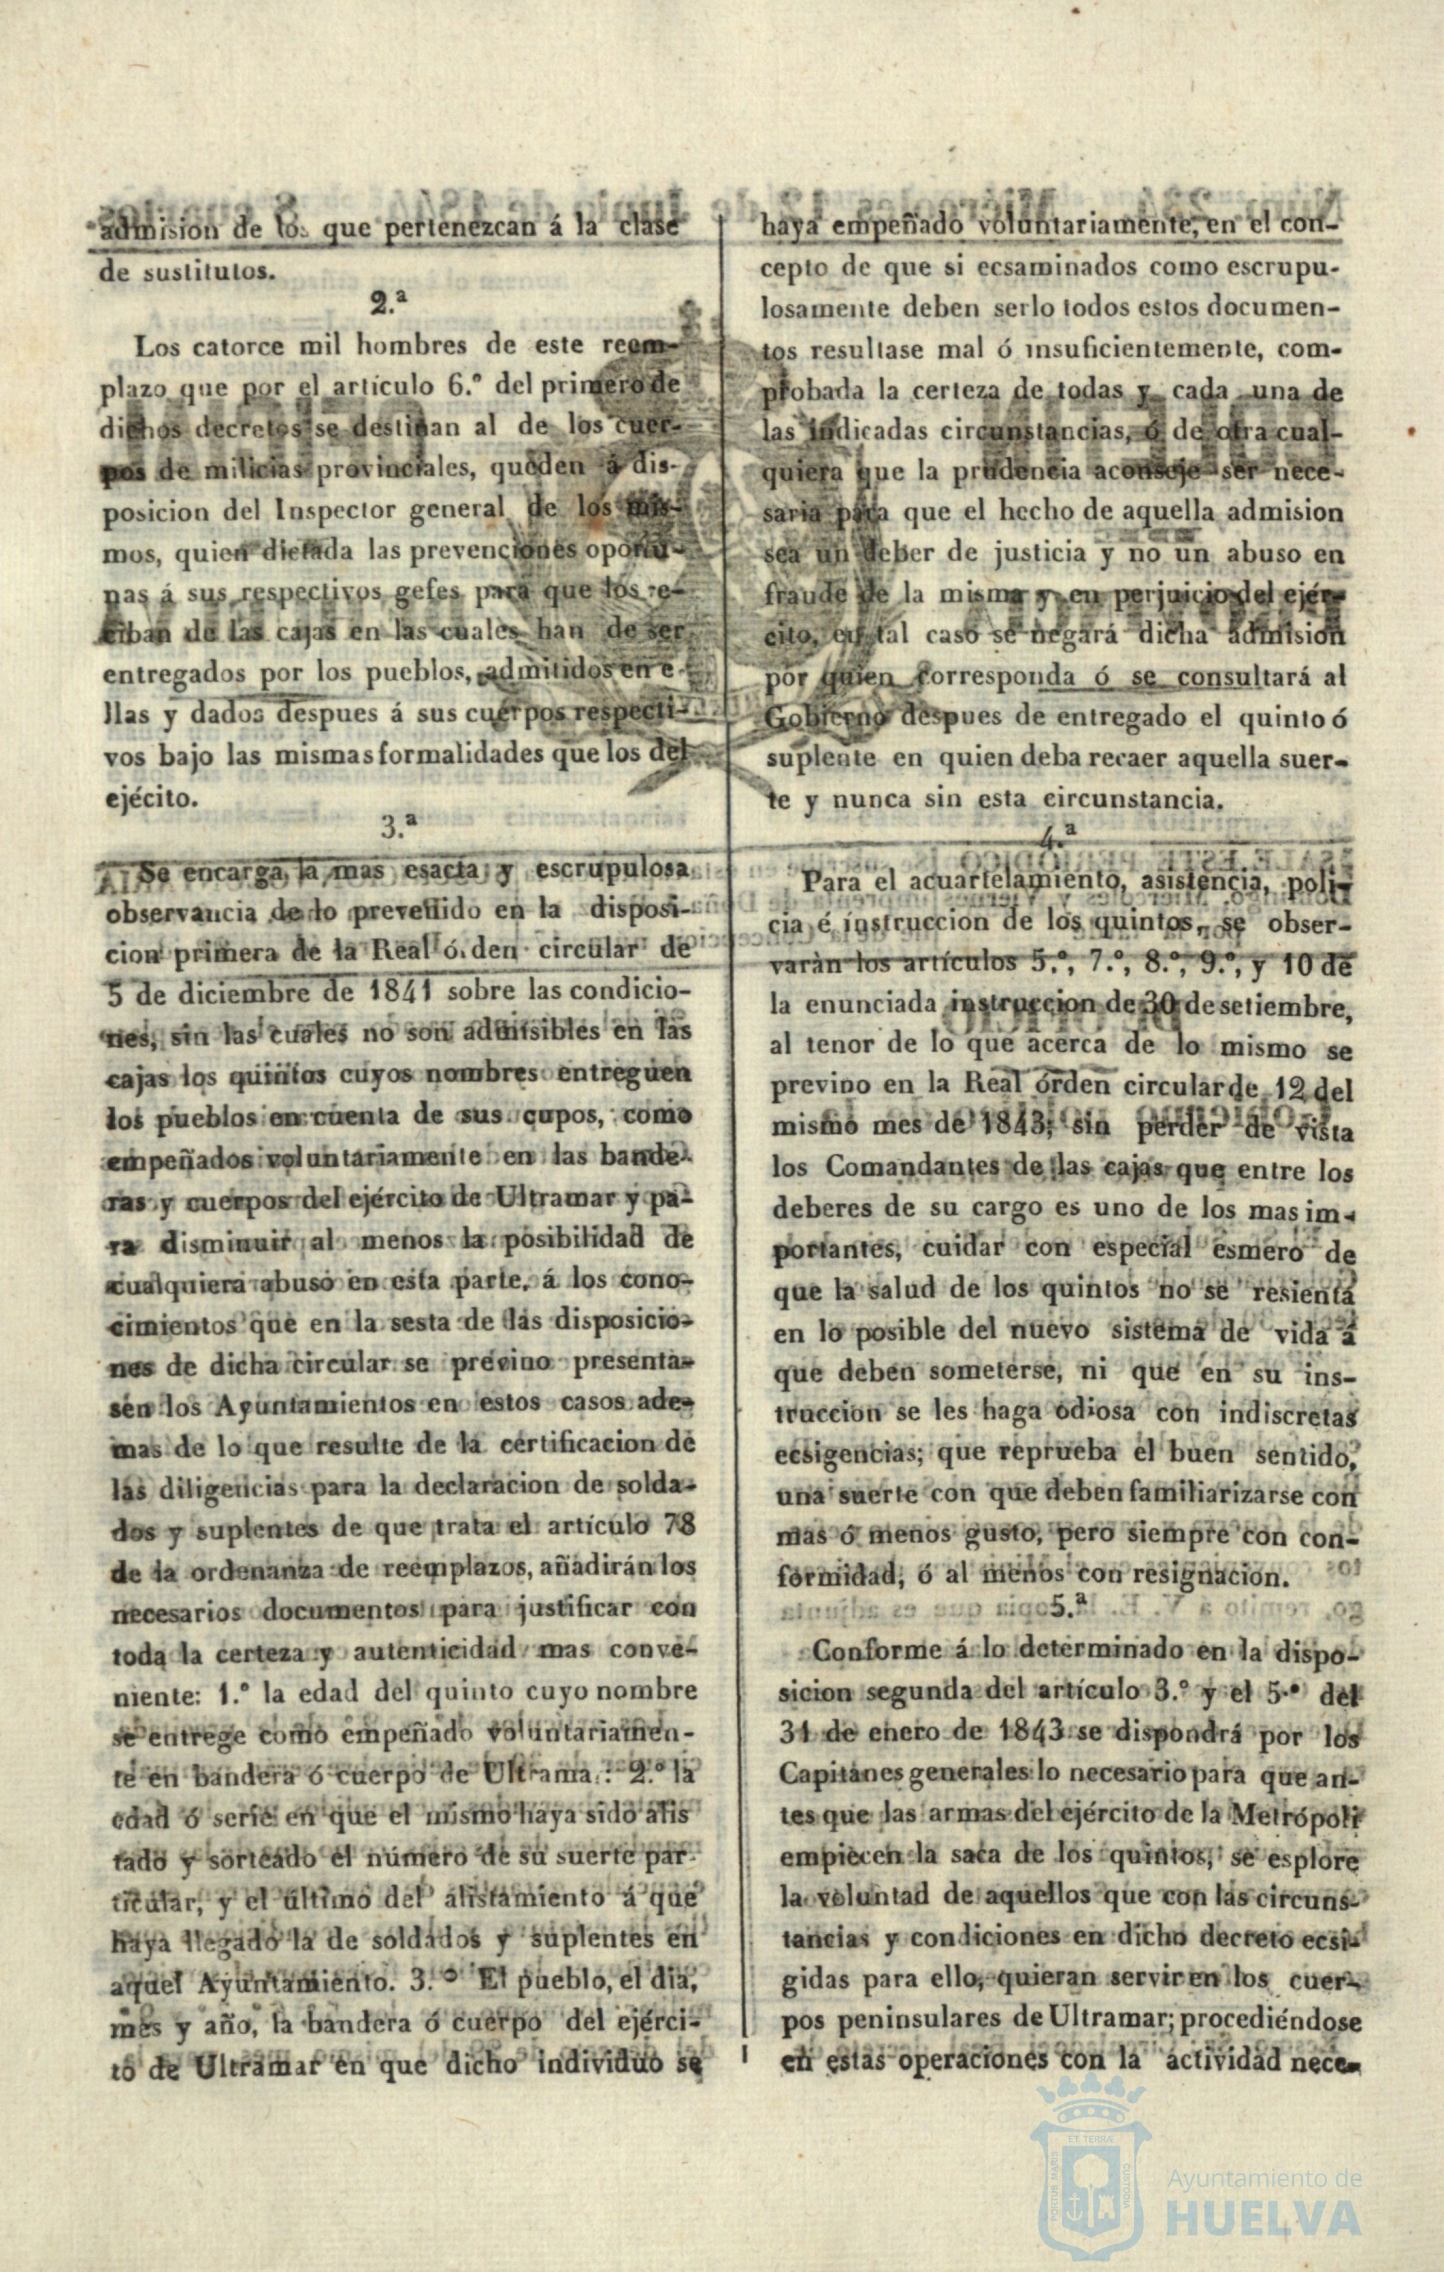 admision de los que pertenezcan á la clase
de sustitutos.
2.ª
Los catorce mil hombres de este reem-
plazo que por el artículo 6.º del primero de
dichos decretos se destinan al de los cuer-
pos de milicias provinciales, queden á dis-
posicion del Inspector general de los mis-
mos, quien dictada las prevenciones oportu-
nas á sus respectivos gefes para que los re-
ciban de las cajas en las cuales han de ser
entregados por los pueblos, admitidos en e-
llas y dados despues á sus cuerpos respecti-
vos bajo las mismas formalidades que los del
ejécito.
3.ª
Se encarga la mas esacta y escrupulosa
observancia de lo prevenido en la disposi-
cion primera de la Real órden circular de
5 de diciembre de 1841 sobre las condicio-
nes, sin las cuales no son admisibles en las
cajas los quintos cuyos nombres entreguen
los pueblos en cuenta de sus cupos, como
empeñados voluntariamente en las bande-
ras y cuerpos del ejército de Ultramar y pa-
ra disminuir al menos la posibilidad de
cualquiera abuso en esta parte, á los cono-
cimientos que en la sesta de las disposicio-
nes de dicha circular se previno presenta-
sen los Ayuntamientos en estos casos ade-
mas de lo que resulte de la certificacion de
las diligencias para la declaracion de solda-
dos y suplentes de que trata el artículo 78
de la ordenanza de reemplazos, añadirán los
necesarios documentos para justificar con
toda la certeza y autenticidad mas conve-
niente: 1.º la edad del quinto cuyo nombre
se entrege como empeñado voluntariamen-
te en bandera ó cuerpo de Ultramar: 2.º la
edad ó serie en que el mismo haya sido alis
tado y sorteado el número de su suerte par-
ticular, y el último del alistamiento á que
haya llegado la de soldados y suplentes en
aquel Ayuntamiento. 3.º El pueblo, el dia,
mes y año, la bandera ó cuerpo del ejérci-
to de Ultramar en que dicho individuo se
haya empeñado voluntariamente, en el con-
cepto de que si ecsaminados como escrupu-
losamente deben serlo todos estos documen-
tos resultase mal ó insuficientemente, com-
probada la certeza de todas y cada una de
las indicadas circunstancias, ó de otra cual-
quiera que la prudencia aconseje ser nece-
saria para que el hecho de aquella admision
sea un deber de justicia y no un abuso en
fraude de la misma y en perjuicio del ejér-
cito, en tal caso se negará dicha admision
por quien corresponda ó se consultará al
Gobierno despues de entregado el quinto ó
suplente en quien deba recaer aquella suer-
te y nunca sin esta circunstancia.
4.ª
Para el acuartelamiento, asistencia, poli-
cia é instruccion de los quintos, se obser-
varàn los artículos 5.º, 7.º, 8.º, 9.º, y 10 de
la enunciada instruccion de 30 de setiembre,
al tenor de lo que acerca de lo mismo se
previno en la Real órden circular de 12 del
mismo mes de 1843; sin perder de vista
los Comandantes de las cajas que entre los
deberes de su cargo es uno de los mas im-
portantes, cuidar con especial esmero de
que la salud de los quintos no se resienta
en lo posible del nuevo sistema de vida á
que deben someterse, ni que en su ins-
truccion se les haga odiosa con indiscretas
ecsigencias; que reprueba el buen sentido,
una suerte con que deben familiarizarse con
mas ó menos gusto, pero siempre con con-
formidad, ó al menos con resignacion.
5.ª
Conforme á lo determinado en la dispo-
sicion segunda del artículo 3.º y el 5.º del
31 de enero de 1843 se dispondrá por los
Capitanes generales lo necesario para que an-
tes que las armas del ejército de la Metrópoli
empiecen la saca de los quintos, se esplore
la voluntad de aquellos que con las circuns-
tancias y condiciones en dicho decreto ecsi-
gidas para ello, quieran servir en los cuer-
pos peninsulares de Ultramar; procediéndose
en estas operaciones con la actividad nece-
ET TERRÆ
PORTUS MARIS
CUSTODIA
Ayuntamiento de
HUELVA